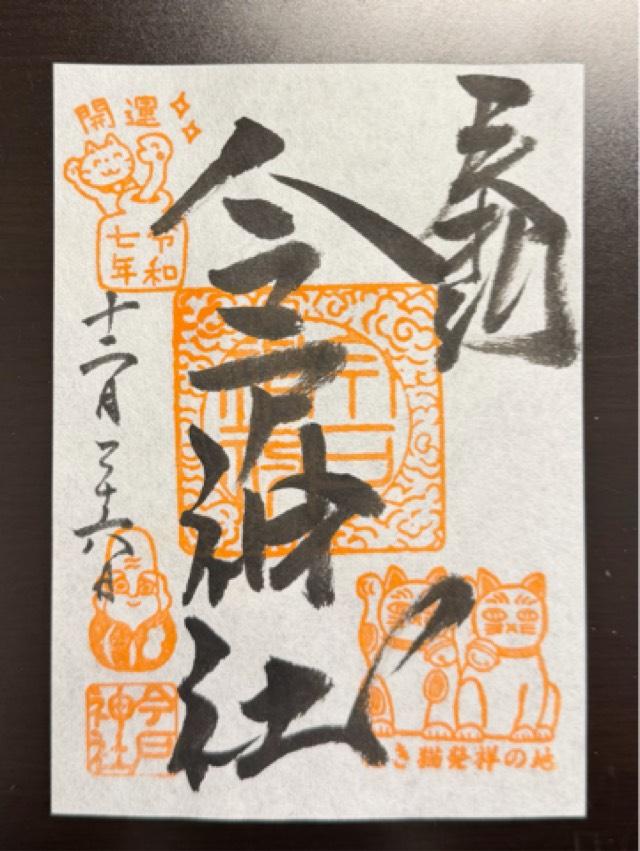 奉拝
今戸神社
開運
令和
七年
十二月二十六日
今戸
神社
き猫発祥の地